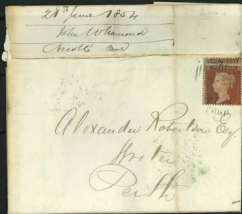 28th June 1854
John Whamond
Alexander Robertson Esq
Writer
Perth